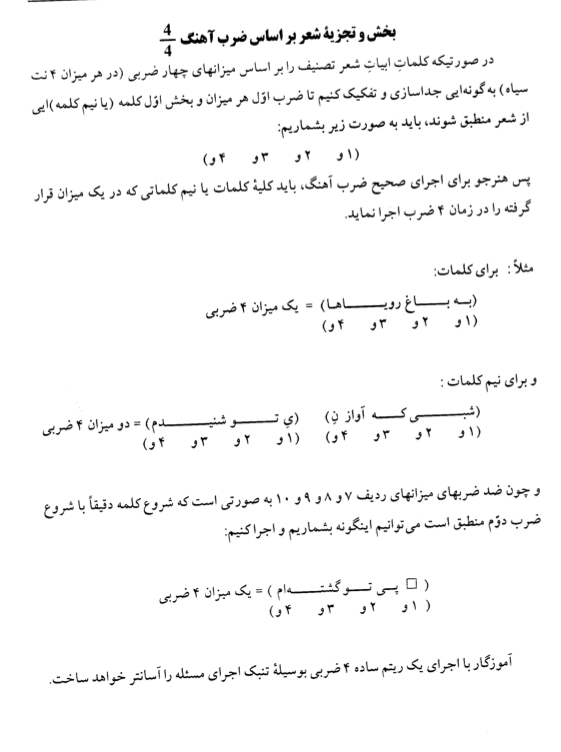 بخش و تجزیهٔ شعر بر اساس ضرب آهنگ ۴/۴
در صورتیکه کلماتِ ابیاتِ شعر تصنیف را بر اساس میزانهای چهار ضربی (در هر میزان ۴ نت
سیاه) به گونه‌ایی جداسازی و تفکیک کنیم تا ضرب اوّل هر میزان و بخش اوّل کلمه (یا نیم کلمه)ایی
از شعر منطبق شوند، باید به صورت زیر بشماریم:
(۱ و ۲ و ۳ و ۴ و)
پس هنرجو برای اجرای صحیح ضرب آهنگ، باید کلیهٔ کلمات یا نیم کلماتی که در یک میزان قرار
گرفته را در زمان ۴ ضرب اجرا نماید.
مثلاً : برای کلمات:
(بـه بـــــاغ رویـــــاهـا) = یک میزان ۴ ضربی
(۱ و ۲ و ۳ و ۴ و)
و برای نیم کلمات :
(شبـــــــی کـــه آواز نِ) (ي تـــــو شنیـــــدم) = دو میزان ۴ ضربی
(۱ و ۲ و ۳ و ۴ و) (۱ و ۲ و ۳ و ۴ و)
و چون ضد ضربهای میزانهای ردیف ۷ و ۸ و ۹ و ۱۰ به صورتی است که شروع کلمه دقیقاً با شروع
ضرب دوّم منطبق است می‌توانیم اینگونه بشماریم و اجرا کنیم:
( □ پـی تـــو گشتــــه‌ام ) = یک میزان ۴ ضربی
( ۱ و ۲ و ۳ و ۴ و)
آموزگار با اجرای یک ریتم ساده ۴ ضربی بوسیلهٔ تنبک اجرای مسئله را آسانتر خواهد ساخت.